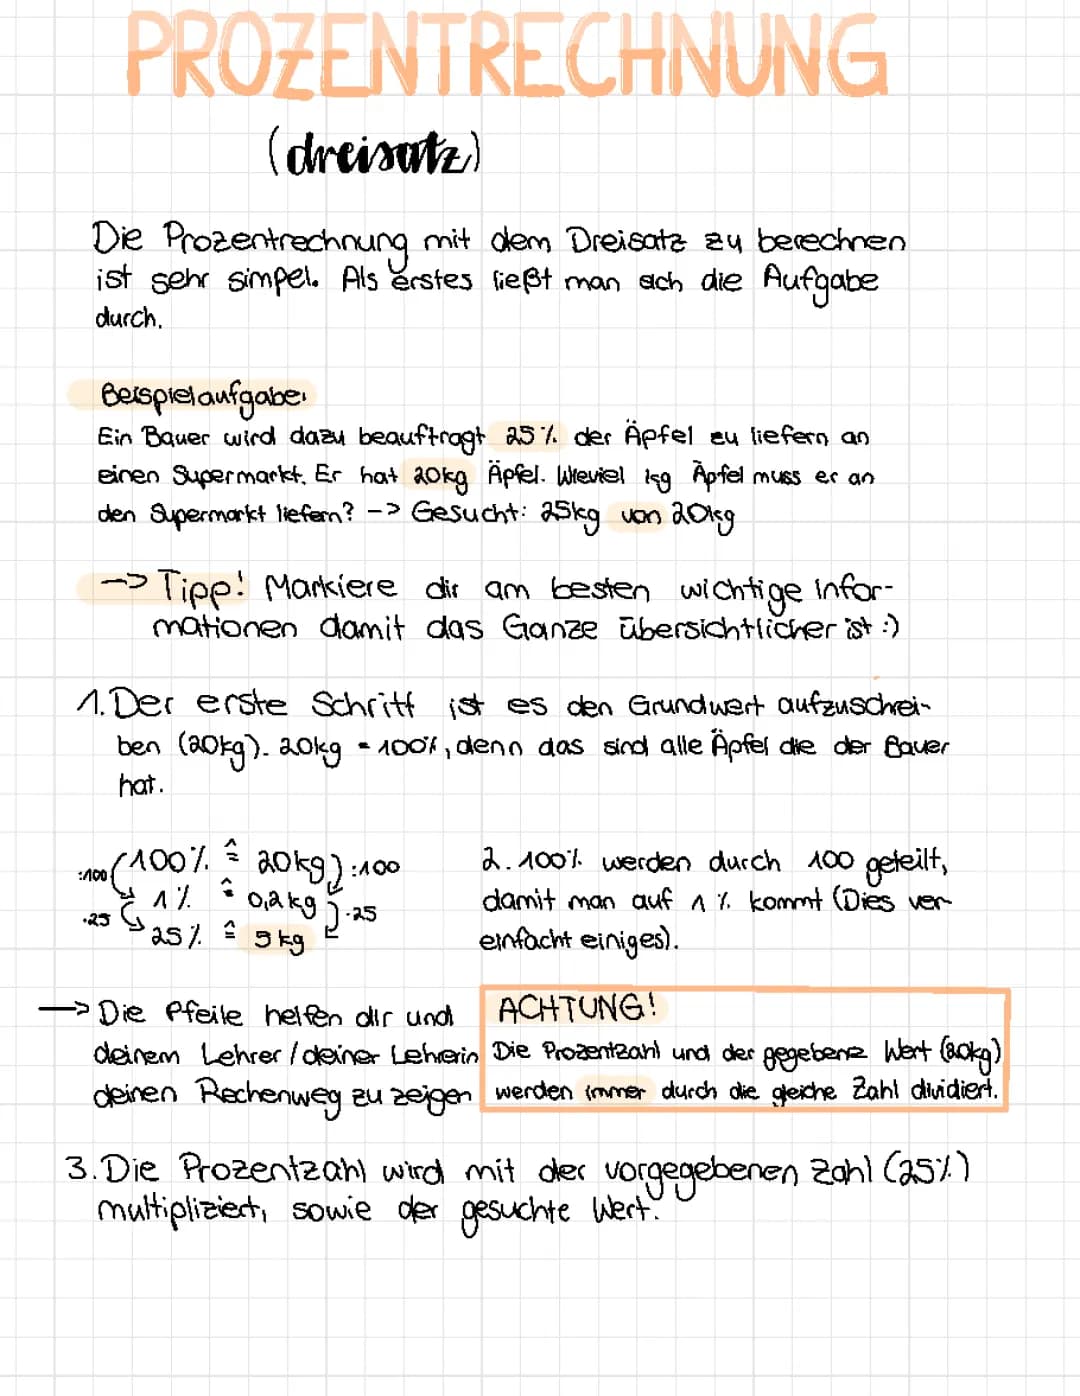 PROZENTRECHNUNG
(dreisatz)
Die Prozentrechnung mit dem Dreisatz zu berechnen
ist sehr simpel. Als erstes ließt man sich die Aufgabe
durch.
Beispielaufgabe:
Ein Bauer wird dazu beauftragt 25% der Äpfel zu liefern an
einen Supermarkt. Er hat 20kg Äpfel. Wieviel kg Äpfel muss er an
den Supermarkt liefern? -> Gesucht: 25kg von 20kg
-> Tipp! Markiere dir am besten wichtige Infor-
mationen damit das Ganze übersichtlicher ist :)
1. Der erste Schritt ist es den Grundwert aufzuschrei-
ben (20kg). 20kg = 100%, denn das sind alle Äpfel die der Bauer
hat.
:100 (100% ≙ 20kg) :100
1% ≙ 0,2kg
·25 25% ≙ 5kg ·25
2. 100% werden durch 100 geteilt,
damit man auf 1% kommt (Dies ver-
einfacht einiges).
-> Die Pfeile helfen dir und
deinem Lehrer/deiner Lehrerin
deinen Rechenweg zu zeigen
ACHTUNG!
Die Prozentzahl und der gegebene Wert (20kg)
werden immer durch die gleiche Zahl dividiert.
3. Die Prozentzahl wird mit der vorgegebenen Zahl (25%)
multipliziert, sowie der gesuchte Wert.